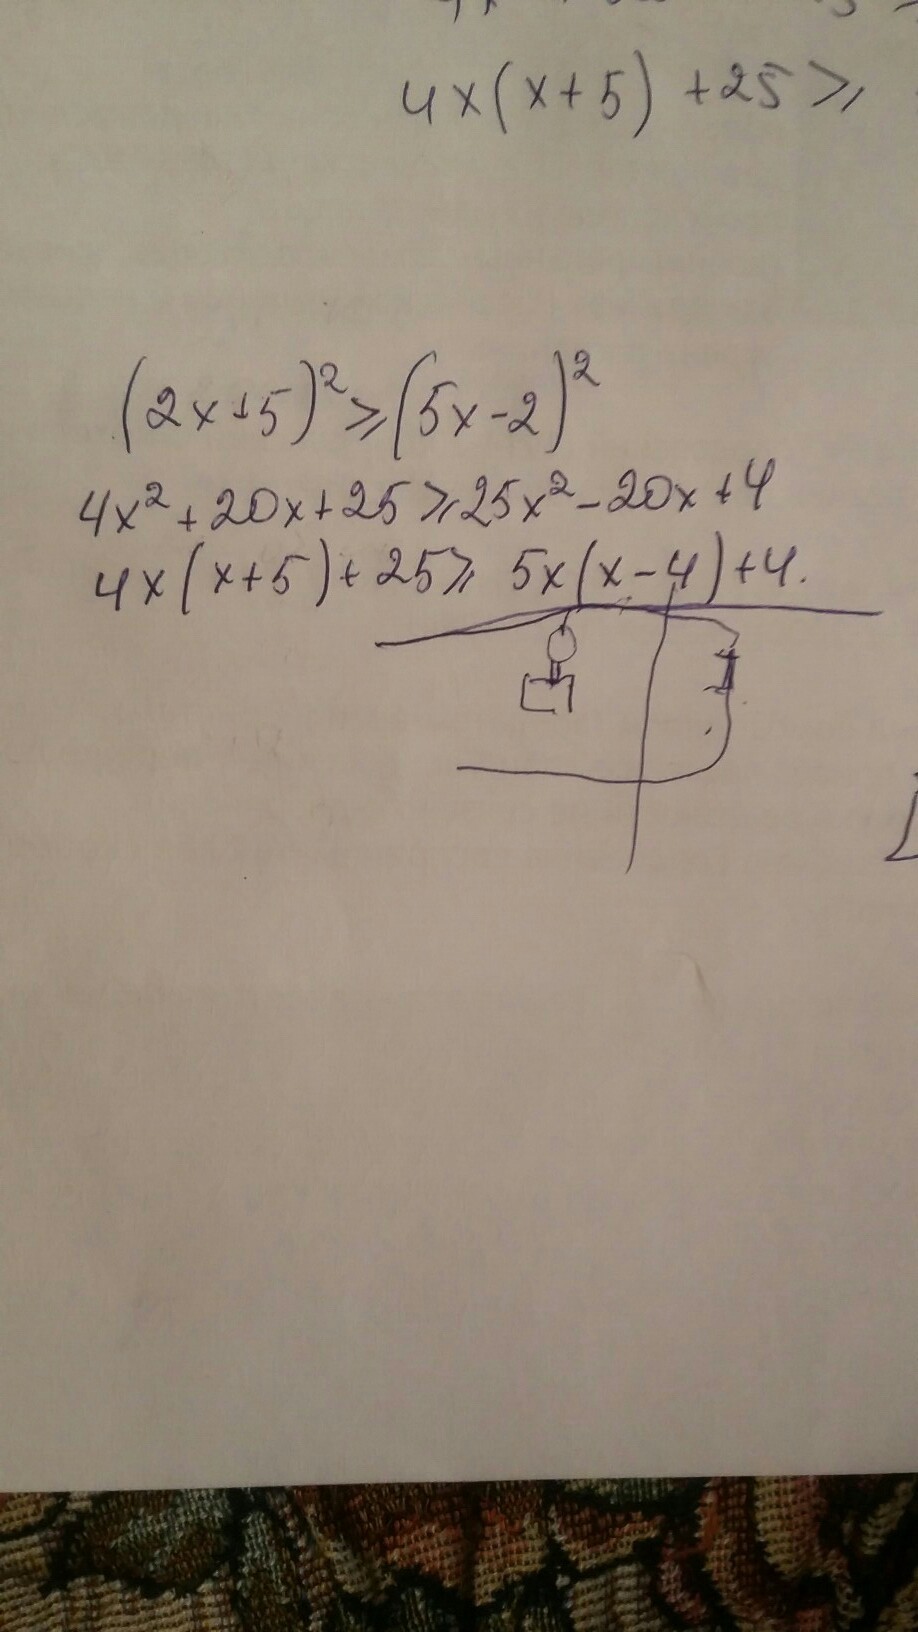 4x(x+5) +25 ⩾
(2x+5)² ⩾ (5x-2)²
4x²+20x+25 ⩾ 25x²-20x+4
4x(x+5)+25 ⩾ 5x(x-4)+4.